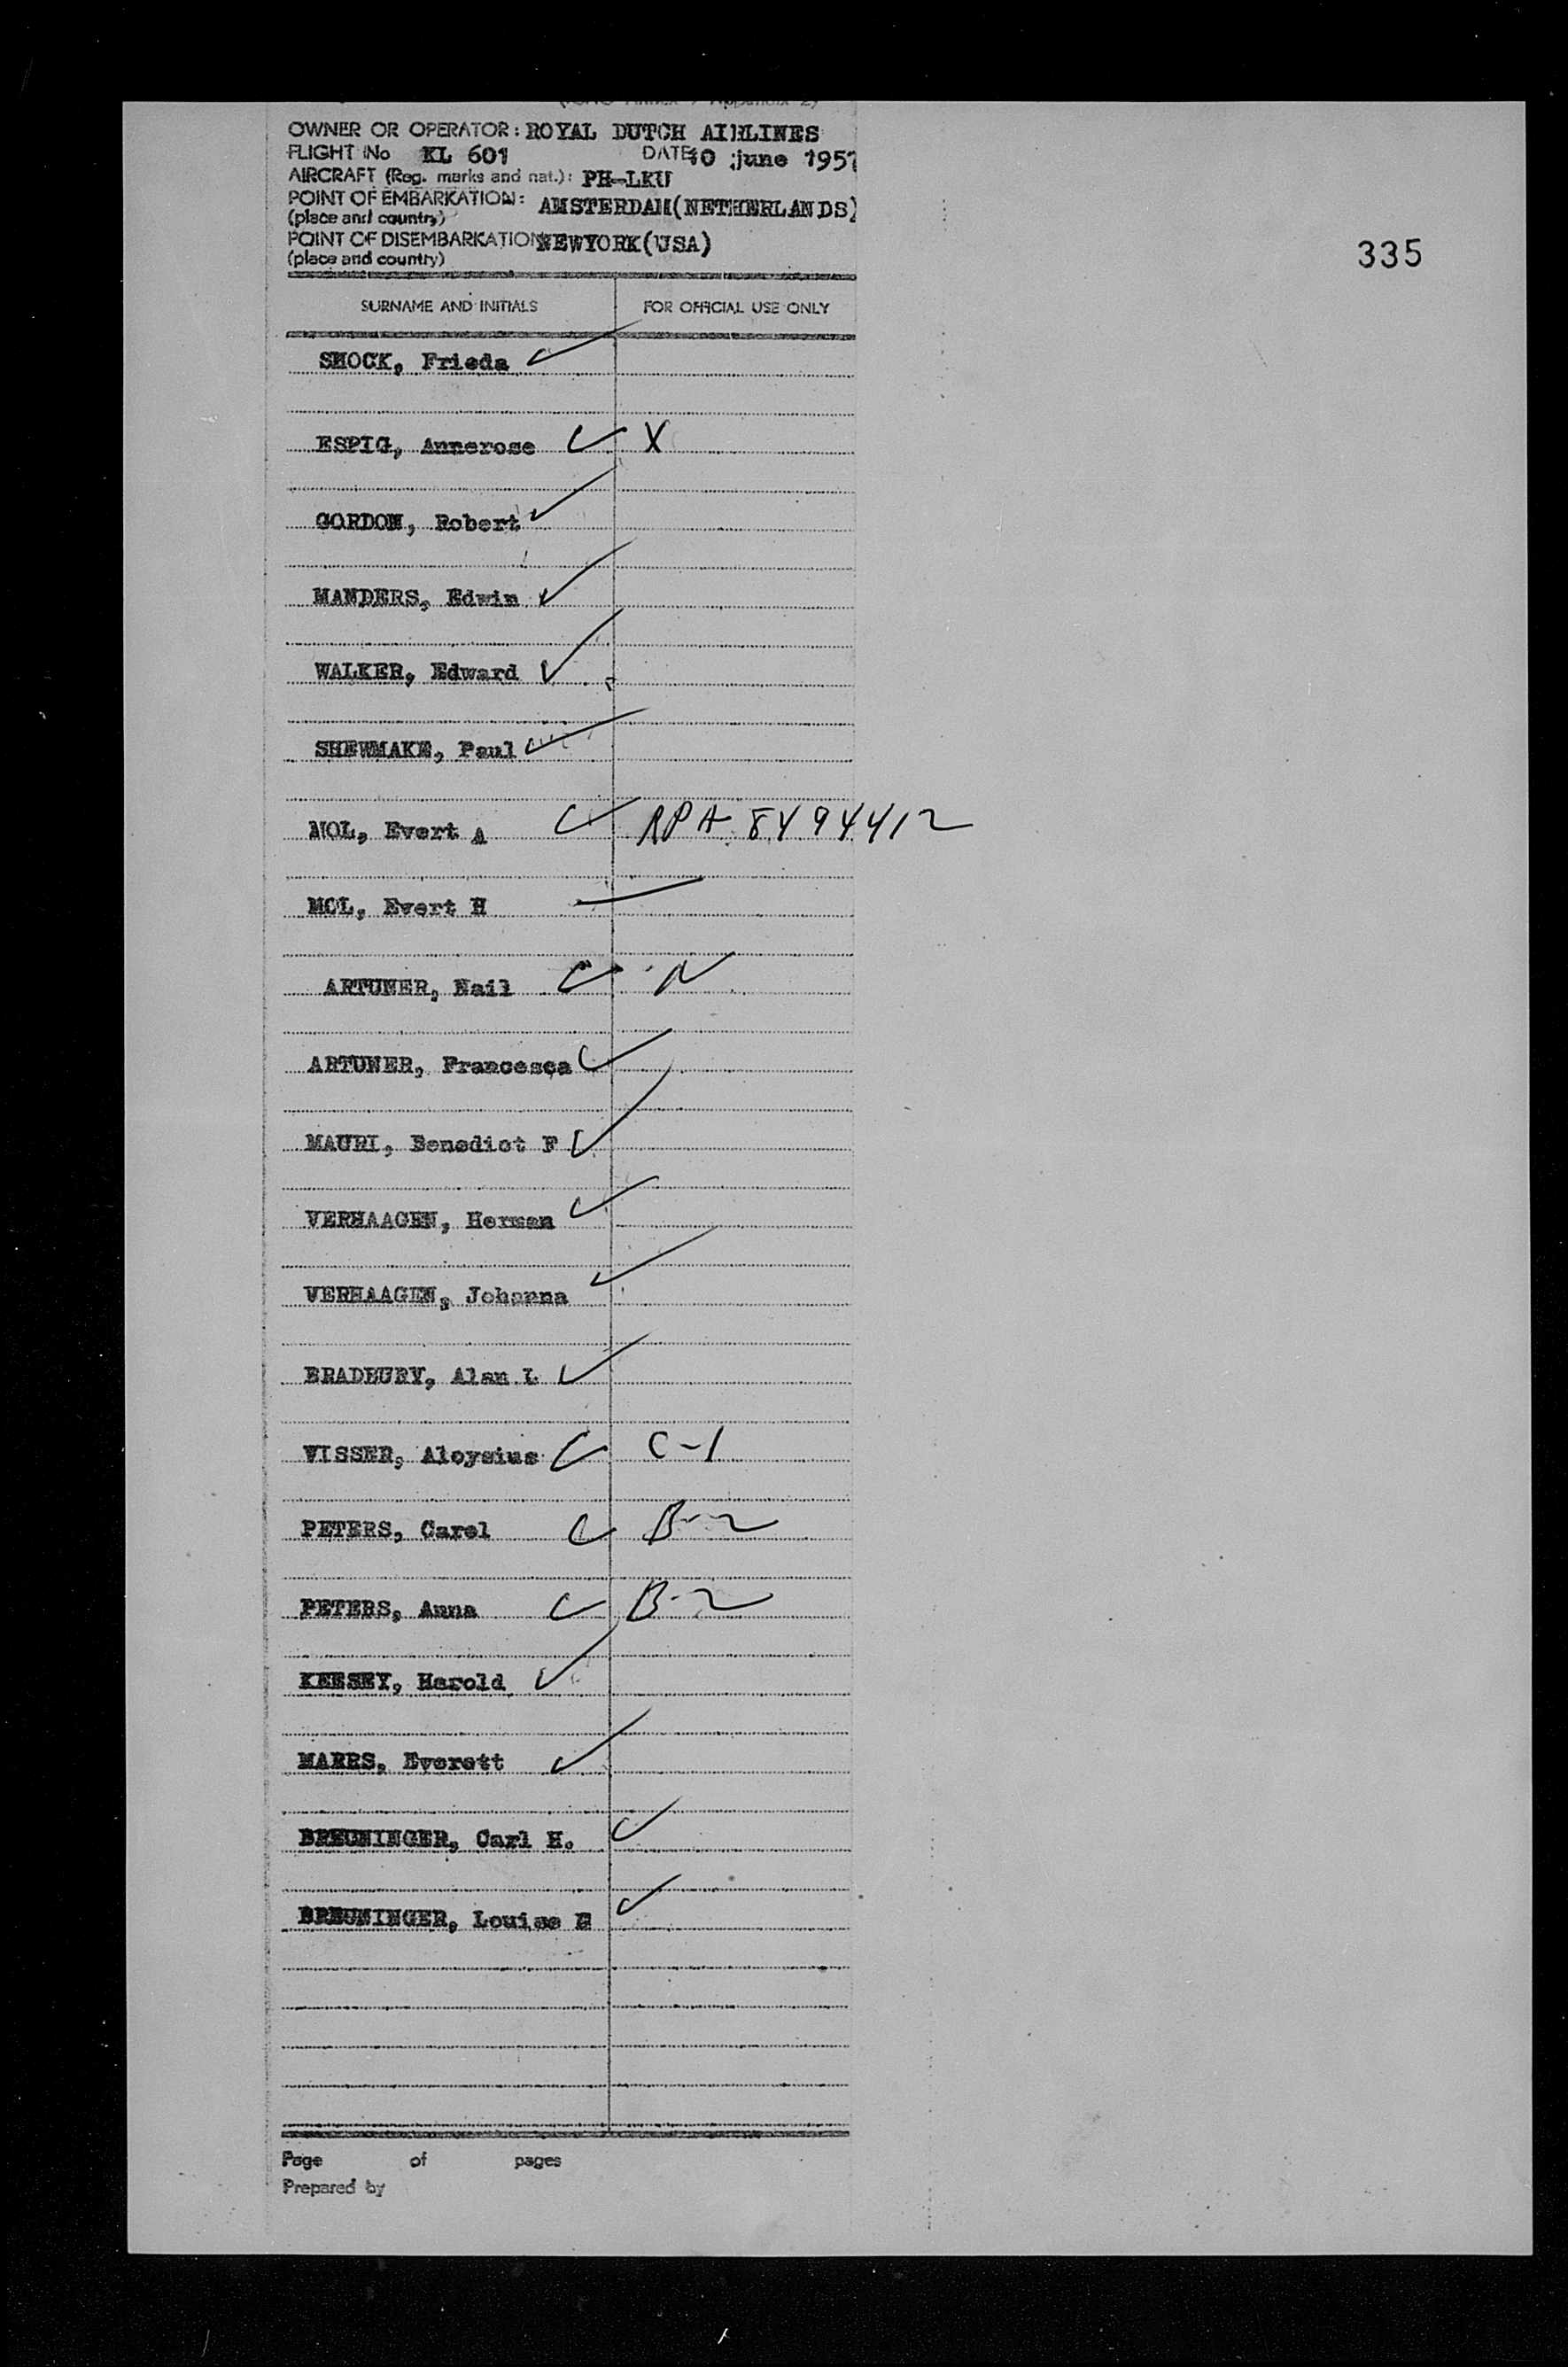 OWNER OR OPERATOR: ROYAL DUTCH AIRLINES
FLIGHT No KL 601 DATE 10 june 1957
AIRCRAFT (Reg. marks and nat.): PH-LKU
POINT OF EMBARKATION: AMSTERDAM(NETHERLANDS)
(place and country)
POINT OF DISEMBARKATION NEWYORK(USA)
(place and country)
335
SURNAME AND INITIALS FOR OFFICIAL USE ONLY
SHOCK, Frieda
ESPIG, Annerose X
GORDON, Robert
MANDERS, Edwin
WALKER, Edward
SHEWMAKE, Paul
MOL, Evert A RPA 8494412
MOL, Evert H
ARTUNER, Nail N
ARTUNER, Francesca
MAURI, Benedict F
VERHAAGEN, Herman
VERHAAGEN, Johanna
BRADBURY, Alan L
VISSER, Aloysius C-1
PETERS, Carel B-2
PETERS, Anna B-2
KEESEY, Harold
MARRS, Everett
BREUNINGER, Carl H.
BREUNINGER, Louise E
Page of pages
Prepared by